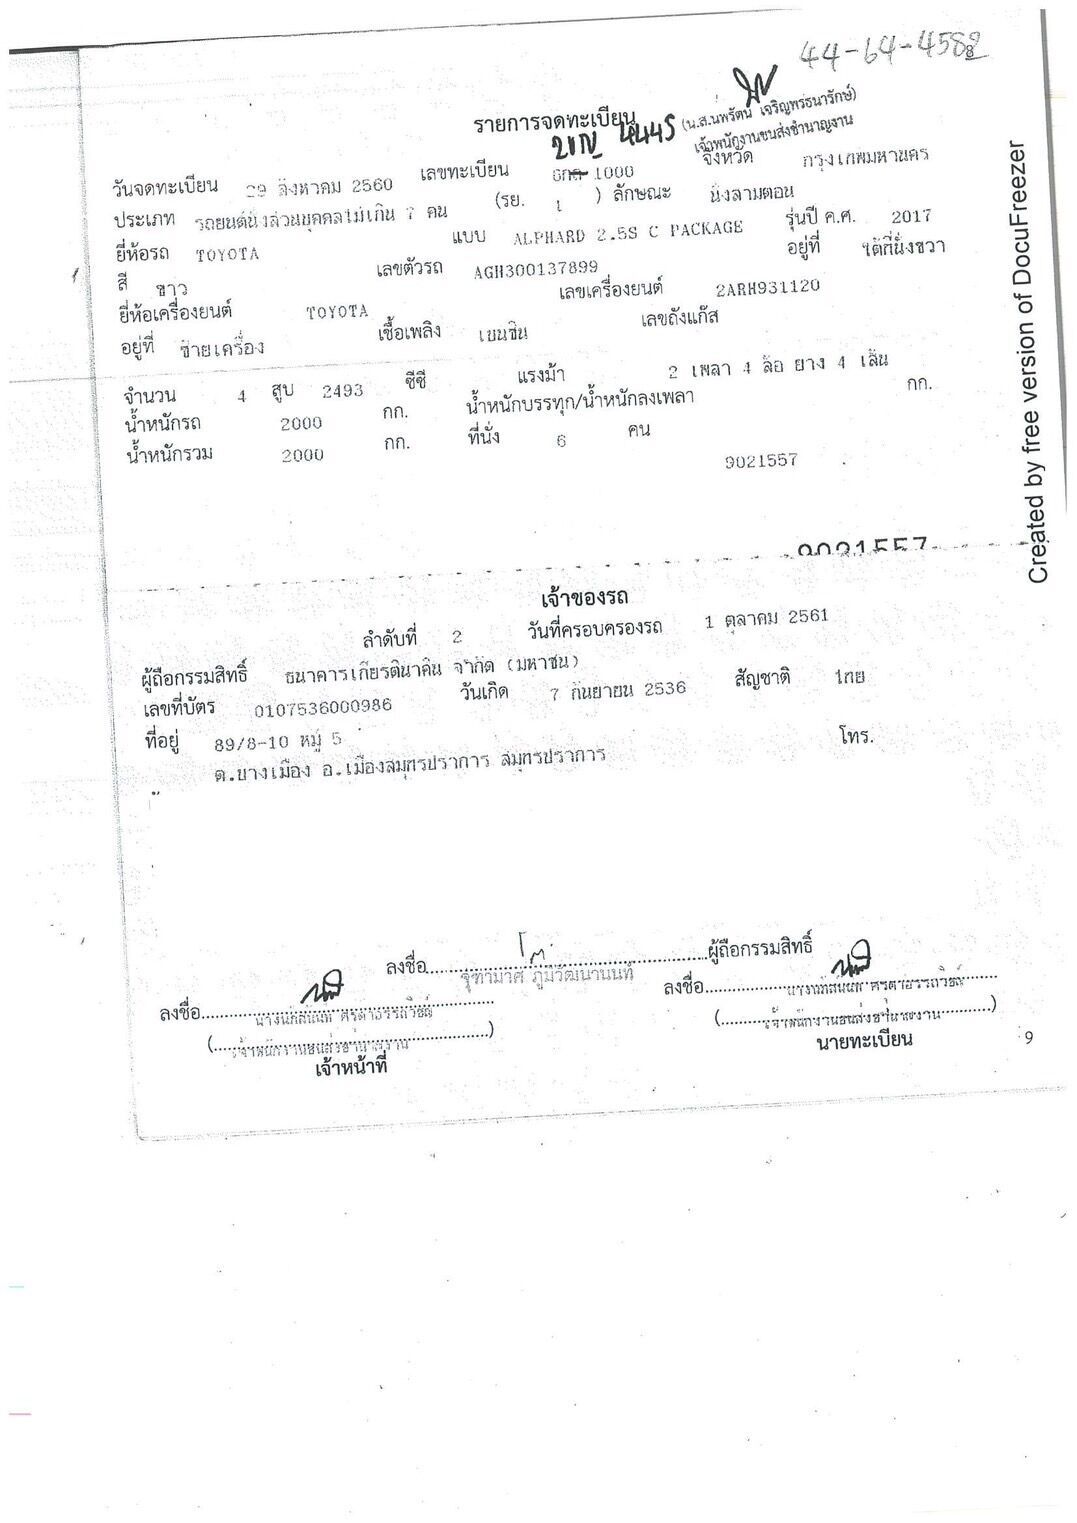 44-64-4582
รายการจดทะเบียน
(น.ส.นพรัตน์ เจริญพรธนารักษ์)
เจ้าพนักงานขนส่งชำนาญงาน
4445
วันจดทะเบียน 29 สิงหาคม 2560 เลขทะเบียน 1000 จังหวัด กรุงเทพมหานคร
ประเภท รถยนต์นั่งส่วนบุคคลไม่เกิน 7 คน (รย. 1 ) ลักษณะ นั่งสามตอน
ยี่ห้อรถ TOYOTA แบบ ALPHARD 2.5S C PACKAGE รุ่นปี ค.ศ. 2017
สี ขาว เลขตัวรถ AGH300137899 อยู่ที่ ใต้ที่นั่งขวา
ยี่ห้อเครื่องยนต์ TOYOTA เลขเครื่องยนต์ 2ARH931120
อยู่ที่ ซ้ายเครื่อง เชื้อเพลิง เบนซิน เลขถังแก๊ส
จำนวน 4 สูบ 2493 ซีซี แรงม้า 2 เพลา 4 ล้อ ยาง 4 เส้น
น้ำหนักรถ 2000 กก. น้ำหนักบรรทุก/น้ำหนักลงเพลา กก.
น้ำหนักรวม 2000 กก. ที่นั่ง 6 คน
9021557
9021557
เจ้าของรถ
ลำดับที่ 2 วันที่ครอบครองรถ 1 ตุลาคม 2561
ผู้ถือกรรมสิทธิ์ ธนาคารเกียรตินาคิน จำกัด (มหาชน)
เลขที่บัตร 0107536000986 วันเกิด 7 กันยายน 2536 สัญชาติ ไทย
ที่อยู่ 89/8-10 หมู่ 5 โทร.
ต.บางเมือง อ.เมืองสมุทรปราการ สมุทรปราการ
ลงชื่อ ผู้ถือกรรมสิทธิ์
จุฑามาศ ภูมิวัฒนานนท์
ลงชื่อ ลงชื่อ
เจ้าหน้าที่ นายทะเบียน
9
Created by free version of DocuFreezer